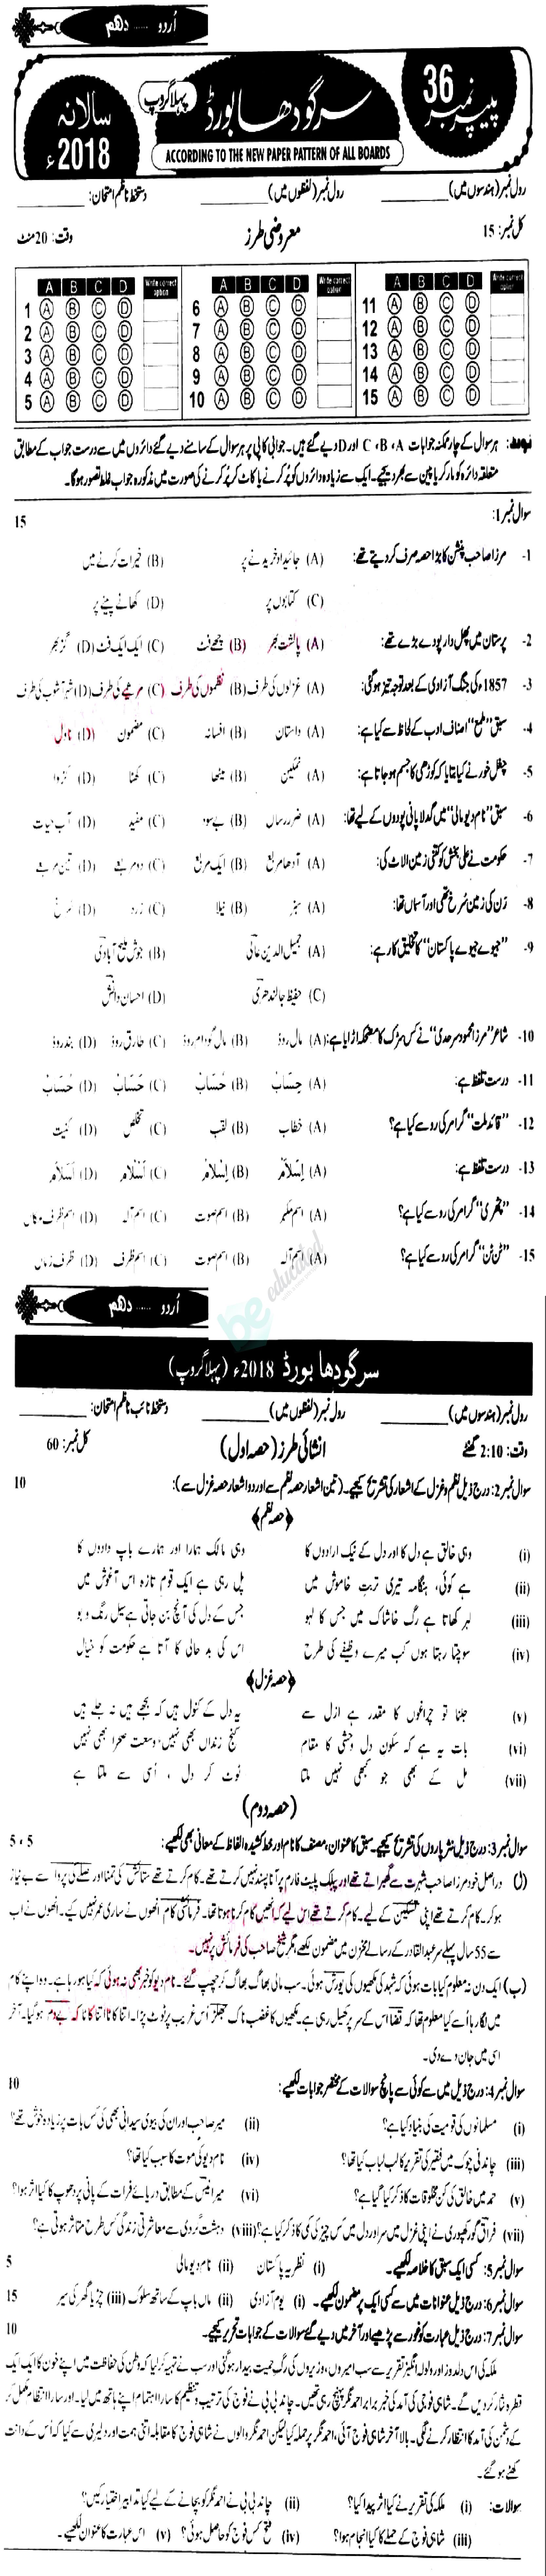 اُردو ...... دہم
پیپر نمبر 36
سرگودھا بورڈ
پہلا گروپ
سالانہ 2018ء
ACCORDING TO THE NEW PAPER PATTERN OF ALL BOARDS
رول نمبر (ہندسوں میں) ________ رول نمبر (لفظوں میں) ________ دستخط ناظم امتحان: ________
کل نمبر: 15 معروضی طرز وقت: 20 منٹ
A B C D Write correct option A B C D Write correct option A B C D Write correct option
1 A B C D 6 A B C D 11 A B C D
2 A B C D 7 A B C D 12 A B C D
3 A B C D 8 A B C D 13 A B C D
4 A B C D 9 A B C D 14 A B C D
5 A B C D 10 A B C D 15 A B C D
نوٹ: ہر سوال کے چار ممکنہ جوابات A ،B ،C اور D دیے گئے ہیں۔ جوابی کاپی پر ہر سوال کے سامنے دیے گئے دائروں میں سے درست جواب کے مطابق
متعلقہ دائرہ کو مارکر یا پین سے بھر دیجیے۔ ایک سے زیادہ دائروں کو پُر کرنے یا کاٹ کر پُر کرنے کی صورت میں مذکورہ جواب غلط تصور ہوگا۔
سوال نمبر 1: 15
1- مرزا صاحب پنشن کا بڑا حصہ صرف کر دیتے تھے: (A) جائیداد خریدنے پر (B) خیرات کرنے میں
(C) کتابوں پر (D) کھانے پینے پر
2- پرستان میں پھل دار پودے بڑے تھے: (A) بالشت بھر (B) چھے فٹ (C) ایک ایک فٹ (D) گز بھر
3- 1857ء کی جنگ آزادی کے بعد توجہ تیز ہو گئی: (A) غزلوں کی طرف (B) نظموں کی طرف (C) مرثیے کی طرف (D) شہر آشوب کی طرف
4- سبق "ملمع" اصناف ادب کے لحاظ سے کیا ہے: (A) داستان (B) افسانہ (C) مضمون (D) ناول
5- چغل خور نے کیا بتایا کہ کوڑھی کا جسم ہو جاتا ہے: (A) نمکین (B) میٹھا (C) کھٹا (D) کڑوا
6- سبق "نام دیو مالی" میں گدلا پانی پودوں کے لیے تھا: (A) ضرر رساں (B) بے سود (C) مفید (D) آب حیات
7- حکومت نے علی بخش کو کتنی زمین الاٹ کی: (A) آدھا مربع (B) ایک مربع (C) دو مربعے (D) تین مربعے
8- رَن کی زمین سُرخ تھی اور آسماں تھا: (A) سبز (B) نیلا (C) زرد (D) سُرخ
9- "جیوے جیوے پاکستان" کا تخلیق کار ہے: (A) جمیل الدین عالی (B) جوش ملیح آبادی
(C) حفیظ جالندھری (D) احسان دانش
10- شاعر "مرزا محمود سرحدی" نے کس سڑک کا مضحکہ اڑایا ہے: (A) مال روڈ (B) مال گودام روڈ (C) طارق روڈ (D) بند روڈ
11- درست تلفظ ہے: (A) حِسَابْ (B) حُسَابْ (C) حَسَابْ
12- "قائد ملت" گرامر کی رو سے کیا ہے؟ (A) خطاب (B) لقب (C) تخلص (D) کنیت
13- درست تلفظ ہے: (A) (B) اِسْلَامْ (C) اُسْلَامْ (D)
14- "چھتری" گرامر کی رو سے کیا ہے؟ (A) اسم مکبر (B) اسم صوت (C) اسم آلہ (D) اسم ظرف مکاں
15- "ٹن ٹن" گرامر کی رو سے کیا ہے؟ (A) اسم آلہ (B) اسم صوت (C) اسم ظرف (D) ظرف زماں
be educated
اُردو ...... دہم
سرگودھا بورڈ 2018ء (پہلا گروپ)
رول نمبر (ہندسوں میں) ________ رول نمبر (لفظوں میں) ________ دستخط نائب ناظم امتحان: ________
وقت: 2:10 گھنٹے انشائی طرز (حصہ اول) کل نمبر: 60
سوال نمبر 2: درج ذیل نظم و غزل کے اشعار کی تشریح کیجیے۔ (تین اشعار حصہ نظم سے اور دو اشعار حصہ غزل سے): 10
﴿حصہ نظم﴾
(i) وہی خالق ہے دل کا اور دل کے نیک ارادوں کا وہی مالک ہمارا اور ہمارے باپ دادوں کا
(ii) ہے کوئی، ہنگامہ تیری تربتِ خاموش میں پل رہی ہے ایک قومِ تازہ اس آغوش میں
(iii) لہر کھاتا ہے رگِ خاشاک میں جس کا لہو جس کے دل کی آنچ بن جاتی ہے سیلِ رنگ و بو
(iv) سوچتا رہتا ہوں کب میرے وظیفے کی طرح اس کی بد حالی کا آتا ہے حکومت کو خیال
﴿حصہ غزل﴾
(v) جلنا تو چراغوں کا مقدر ہے ازل سے یہ دل کے کنول ہیں کہ بجھے ہیں نہ جلے ہیں
(vi) بات یہ ہے کہ سکون دل وحشی کا مقام کنج زنداں بھی نہیں، وسعت صحرا بھی نہیں
(vii) مل کے بھی جو کبھی نہیں ملتا ٹوٹ کر دل، اُسی سے ملتا ہے
(حصہ دوم)
سوال نمبر 3: درج ذیل نثر پاروں کی تشریح کیجیے۔ سبق کا عنوان، مصنف کا نام اور خط کشیدہ الفاظ کے معانی بھی لکھیے: 5 ، 5
(ل) دراصل خود مرزا صاحب شہرت سے گھبراتے تھے اور پبلک پلیٹ فارم پر آنا پسند نہیں کرتے تھے۔ کام کرتے تھے ستائش کی تمنا اور صلے کی پروا سے بے نیاز
ہو کر۔ کام کرتے تھے اپنی تسکین کے لیے۔ کام کرتے تھے اس لیے کہ انھیں کام کرنا ہوتا تھا۔ فرمائشی کام انھوں نے ساری عمر نہیں کیے۔ انھوں نے اب
سے 55 سال پہلے سر عبدالقادر کے رسالے مخزن میں مضمون لکھے، مگر شیخ صاحب کی فرمائش پر نہیں۔
(ب) ایک دن نہ معلوم کیا بات ہوئی کہ شہد کی مکھیوں کی یورش ہوئی۔ سب مالی بھاگ بھاگ کر چھپ گئے۔ نام دیو کو خبر بھی نہ ہوئی کہ کیا ہو رہا ہے۔ وہ اپنے کام
میں لگا رہا اُسے کیا معلوم تھا کہ قضا اس کے سر پر کھیل رہی ہے۔ مکھیوں کا غضب ناک جھلڑ اُس غریب پر ٹوٹ پڑا۔ اتنا کاٹا اتنا کاٹا کہ بے دم ہو گیا۔ آخر
اسی میں جان دے دی۔
سوال نمبر 4: درج ذیل میں سے کوئی سے پانچ سوالات کے مختصر جوابات لکھیے: 10
(i) مسلمانوں کی قومیت کی بنیاد کیا ہے؟ (ii) میر صاحب اور ان کی بیوی سیدانی بھی کی کس بات پر زیادہ خوش تھے؟
(iii) چاندنی چوک میں فقیر کی تقریر کا لب لباب کیا تھا؟ (iv) نام دیو کی موت کا سبب کیا تھا؟
(v) حمد میں خالق کی کن مخلوقات کا ذکر کیا گیا ہے؟ (vi) میر انیس کے مطابق دریائے فرات کے پانی پر دھوپ کا کیا اثر ہوا؟
(vii) فراق گورکھپوری نے اپنی غزل میں سر اور دل میں کس چیز کی کمی کا ذکر کیا ہے؟ (viii) دہشت گردی سے معاشرتی زندگی کس طرح متاثر ہوتی ہے؟
سوال نمبر 5: کسی ایک سبق کا خلاصہ لکھیے۔ (i) نظریہ پاکستان (ii) نام دیو مالی 5
سوال نمبر 6: درج ذیل عنوانات میں سے کسی ایک پر مضمون لکھیے۔ (i) یوم آزادی (ii) ماں باپ کے ساتھ سلوک (iii) چڑیا گھر کی سیر 15
سوال نمبر 7: درج ذیل عبارت کو غور سے پڑھیے اور آخر میں دیے گئے سوالات کے جوابات تحریر کیجیے۔ 10
ملکہ کی اس دلدوز اور ولولہ انگیز تقریر سے سب امیروں، وزیروں کی رگِ حمیت بیدار ہو گئی اور سب نے تہیہ کر لیا کہ وطن کی حفاظت میں اپنے خون کا ایک ایک
قطرہ نثار کر دیں گے۔ شاہی فوجی کی آمد کی خبر برابر احمد نگر پہنچ رہی تھیں۔ چاند بی بی نے فوج کی ترتیب و تنظیم کا سارا اہتمام اپنے ہاتھ میں لیا۔ اور سارا انتظار مکمل کر
کے دشمن کی آمد کا انتظار کرنے لگی۔ بالآخر شاہی فوج آئی، احمد نگر پر حملہ کیا لیکن احمد نگر والوں نے شاہی فوج کا مقابلہ اتنی ہمت اور دلیری سے کیا کہ اُس کے دانت
کھٹے ہو گئے۔
سوالات: (i) ملکہ کی تقریر نے کیا اثر پیدا کیا؟ (ii) چاند بی بی نے احمد نگر کو بچانے کے لیے کیا تدابیر اختیار کیں؟
(iii) شاہی فوج کے حملے کا کیا انجام ہوا؟ (iv) فتح کس فوج کو حاصل ہوئی؟ (v) اس عبارت کا عنوان لکھیے۔